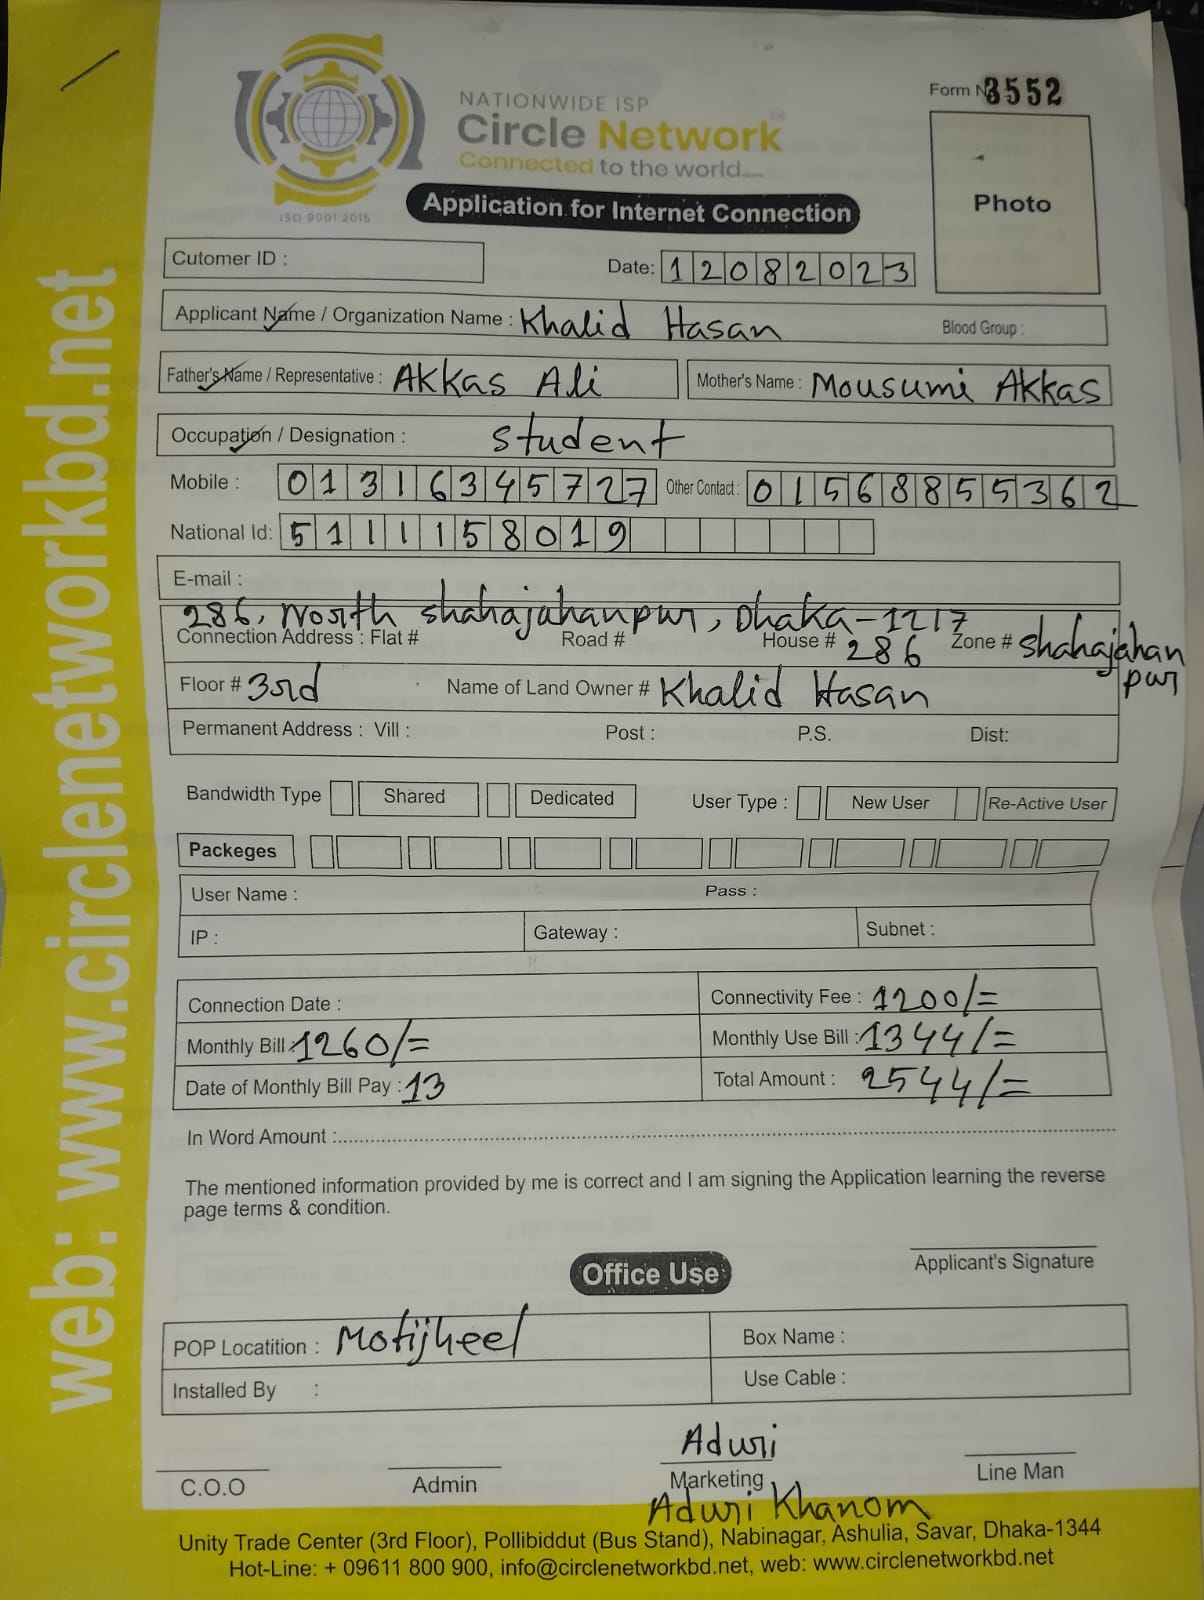 web: www.circlenetworkbd.net
NATIONWIDE ISP
Circle Network
Connected to the world.....
ISO 9001:2015
Form N 3552
Photo
Application for Internet Connection
Cutomer ID :
Date: 12082023
Applicant Name / Organization Name : Khalid Hasan Blood Group :
Father's Name / Representative : AKKAS Ali Mother's Name : Mousumi AKKas
Occupation / Designation : Student
Mobile : 01316345727 Other Contact : 01568855362
National Id: 5111158019
E-mail :
286, North Shahajahanpur, Dhaka-1217
Connection Address : Flat # Road # House # 286 Zone # Shahajahanpur
Floor # 3rd Name of Land Owner # Khalid Hasan
Permanent Address : Vill : Post : P.S. Dist:
Bandwidth Type Shared Dedicated User Type : New User Re-Active User
Packeges
User Name : Pass :
IP : Gateway : Subnet :
Connection Date : Connectivity Fee : 1200/=
Monthly Bill : 1260/= Monthly Use Bill : 1344/=
Date of Monthly Bill Pay : 13 Total Amount : 2544/=
In Word Amount :
The mentioned information provided by me is correct and I am signing the Application learning the reverse
page terms & condition.
Applicant's Signature
Office Use
POP Locatition : Motijheel Box Name :
Installed By : Use Cable :
Aduri
C.O.O Admin Marketing Line Man
Aduri Khanom
Unity Trade Center (3rd Floor), Pollibiddut (Bus Stand), Nabinagar, Ashulia, Savar, Dhaka-1344
Hot-Line: + 09611 800 900, info@circlenetworkbd.net, web: www.circlenetworkbd.net